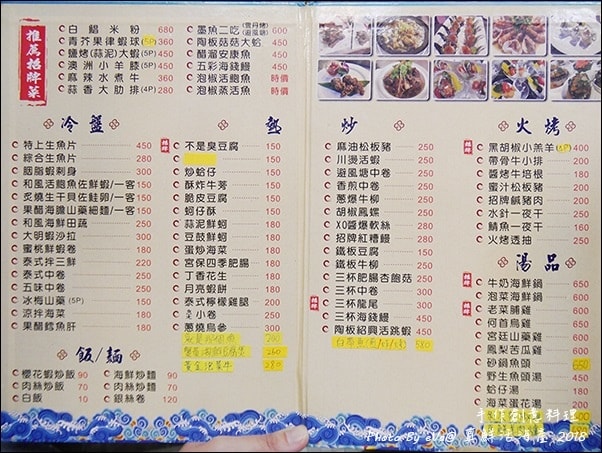 推薦招牌菜
白鯧米粉 680
青芥果律蝦球(5P) 360
鹽烤(蒜泥)大蝦 450
澳洲小羊膝(5P) 450
麻辣水煮牛 360
蒜香大肋排(4P) 280
墨魚二吃 600
陶板菇菇大蛤 450
醋溜安康魚 450
五彩海錢鰻 450
泡椒活鱷魚 時價
泡椒蒸活魚 時價
冷盤
特上生魚片 450
綜合生魚片 280
胭脂蝦刺身 300
和風活鮑魚佐鮮蝦/一客 150
炙燒生干貝佐鮭卵/一客 150
果醋海膽山藥細麵/一客 150
和風海鮮田蔬 250
大明蝦沙拉 300
蜜桃鮮蝦卷 180
泰式拌三鮮 220
泰式中卷 220
五味中卷 250
冰梅山藥(5P) 150
涼拌海菜 180
果醋鱈魚肝 180
飯/麵
櫻花蝦炒飯 90
肉絲炒飯 70
白飯 10
海鮮炒麵 90
肉絲炒麵 70
銀絲卷 120
熱
不是臭豆腐 150
炒蛤仔 150
酥炸牛蒡 150
脆皮豆腐 150
蚵仔酥 150
蒜泥鮮蚵 180
豆鼓鮮蚵 180
蛋炒海菜 180
宮保四季肥腸 180
丁香花生 180
月亮蝦餅 180
泰式檸檬雞腿 200
小卷 200
蔥燒烏參 300
200
260
280
炒
麻油松板豬 250
川燙活蝦 250
避風塘中卷 250
香煎中卷 250
蔥爆牛柳 250
胡椒鳳螺 250
XO醬爆軟絲 250
招牌紅糟鰻 250
鐵板豆腐 250
鐵板牛柳 250
三杯肥腸杏鮑菇 250
三杯中卷 300
三杯龍尾 300
三杯海錢鰻 450
陶板紹興活跳蝦 450
580
火烤
黑胡椒小羔羊 400
帶骨牛小排 200
醬烤牛培根 200
蜜汁松板豬 200
招牌鹹豬肉 200
水針一夜干 200
鯖魚一夜干 200
火烤透抽 250
湯品
牛奶海鮮鍋 650
泡菜海鮮鍋 650
老菜脯雞 650
何首烏雞 650
宮廷山藥雞 650
鳳梨苦瓜雞 650
砂鍋魚頭
野生魚頭湯 450
蛤仔湯 150
海菜蛋花湯 200
手作創意料理
Photo By eVa@ 真鮮活海產, 2018